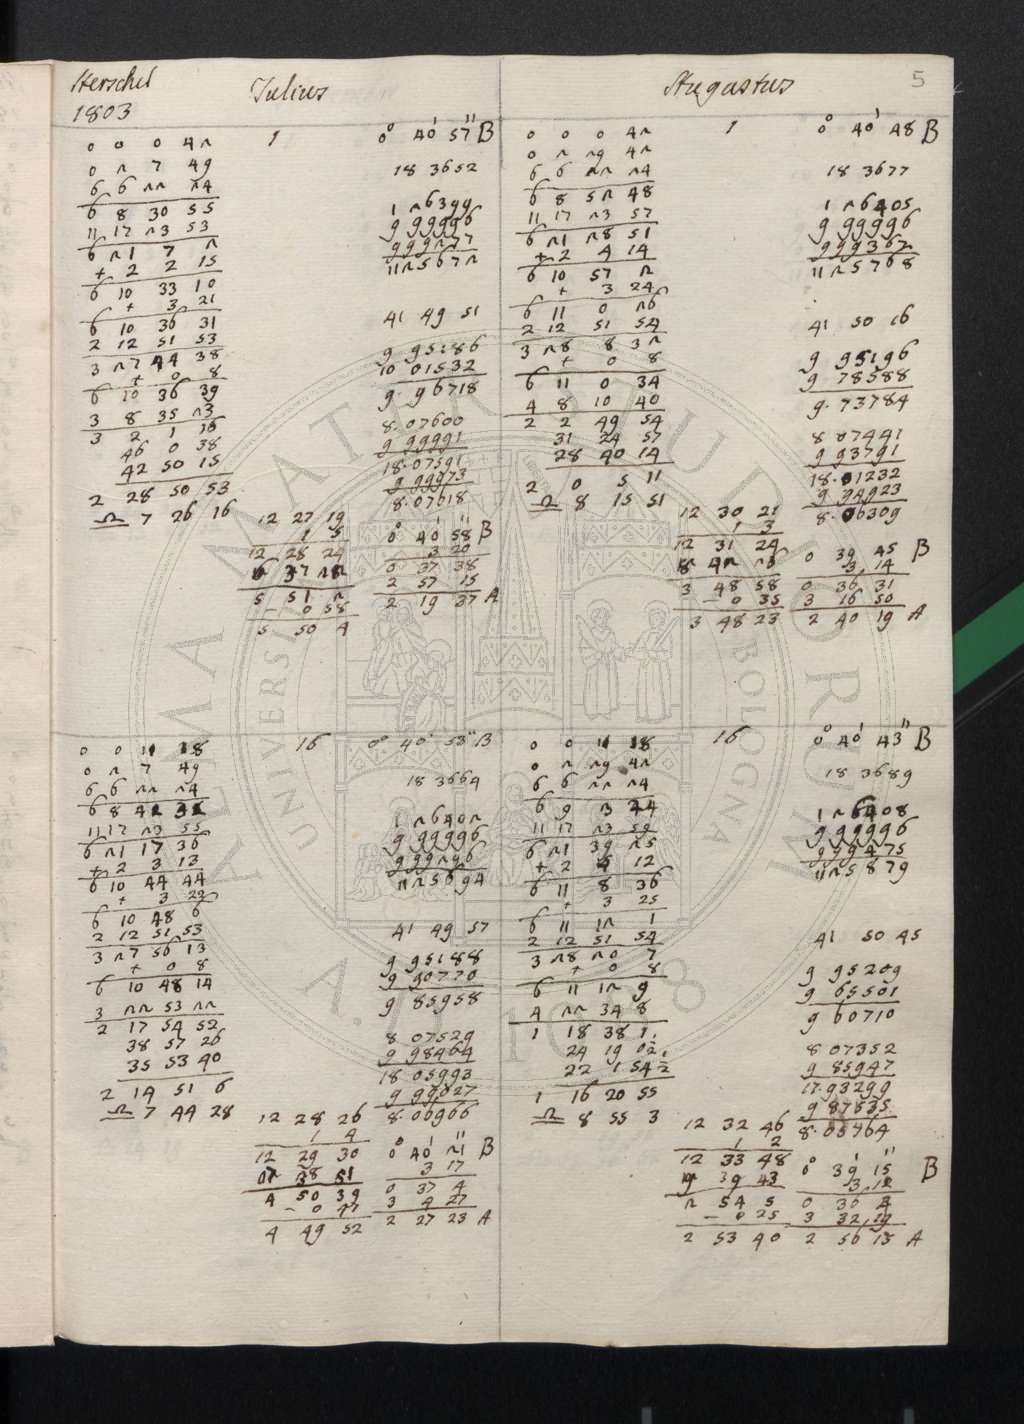 Herschel
1803
Julius
Augustus
5
1
0° 40' 57'' B
0 0 0 42
0 2 7 49
6 6 22 24
6 8 30 55
11 17 23 53
6 21 7 2
+ 2 2 15
6 10 33 10
+ 3 21
6 10 36 31
2 12 51 53
3 27 44 38
+ 0 8
6 10 36 39
3 8 35 23
3 2 1 16
46 0 38
42 50 15
2 28 50 53
♎ 7 26 16
12 27 19
1 5
12 28 24
6 37 22
5 51 2
– 0 58
5 50 4
18 3652
1 26399
9 99996
9 99277
11 25672
41 49 51
9 95186
10 01532
9.96718
8.07600
9 99991
18.07591
9 99973
8.07618
0° 40' 58'' B
3 20
0 37 38
2 57 15
2 19 37 A
1
0° 40' 48 B
0 0 0 42
0 2 29 42
6 6 22 24
6 8 52 48
11 17 23 57
6 21 28 51
+ 2 4 14
6 10 57 2
+ 3 24
6 11 0 26
2 12 51 54
3 28 8 32
+ 0 8
6 11 0 34
4 8 10 40
2 2 49 54
31 24 57
28 40 14
2 0 5 11
♎ 8 15 51
12 30 21
1 3
12 31 24
8 42 26
3 48 58
– 0 35
3 48 23
18 3677
1 26405
9 99996
9 99367
11 25768
41 50 16
9 95196
9 78588
9.73784
8 07441
9 93791
18.01232
9 94923
8.06309
0 39 45 B
3 14
0 36 31
3 16 50
2 40 19 A
16
0° 40' 53'' B
0 0 11 18
0 2 7 49
6 6 22 24
6 8 41 31
11 17 23 55
6 21 17 36
+ 2 3 13
6 10 44 44
+ 3 22
6 10 48 6
2 12 51 53
3 27 56 13
+ 0 8
6 10 48 14
3 22 53 22
2 17 54 52
38 57 26
35 53 40
2 14 51 6
♎ 7 44 28
12 28 26
1 4
12 29 30
7 38 51
4 50 39
– 0 47
4 49 52
18 3664
1 26402
9 99996
9 99296
11 25694
41 49 57
9 95188
9 90770
9 85958
8 07529
9 98464
18 05993
9 99027
8.06966
0° 40' 21'' B
3 17
0 37 4
3 4 27
2 27 23 A
16
0° 40' 43'' B
0 0 11 18
0 2 29 42
6 6 22 24
6 9 3 24
11 17 23 59
6 21 39 25
+ 2 5 12
6 11 8 36
+ 3 25
6 11 12 1
2 12 51 54
3 28 20 7
+ 0 8
6 11 12 9
4 22 34 8
1 18 38 1
24 19 0½
22 1 54½
1 16 20 55
♎ 8 55 3
12 32 46
1 2
12 33 48
9 39 43
2 54 5
– 0 25
2 53 40
18 3689
1 26408
9 99996
9 99475
11 25879
41 50 45
9 95209
9 65501
9 60710
8 07352
9 85947
17.93299
9 87535
8.05764
0° 39' 15'' B
3 12
0 36 4
3 32 19
2 56 15 A
ALMA MATER STUDIORUM
UNIVERSITÀ DI BOLOGNA
A.D. 1088